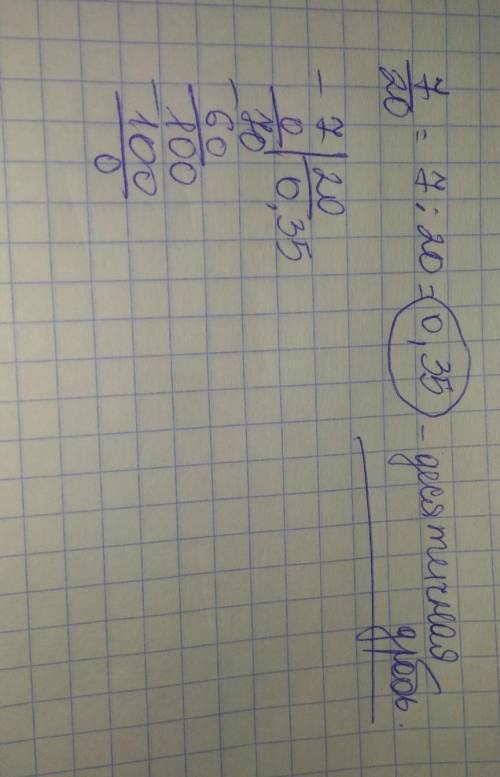 7/20 = 7 : 20 = 0,35 - десятичная
дробь.
- 7 | 20
0 | 0,35
- 70
60
- 100
100
0